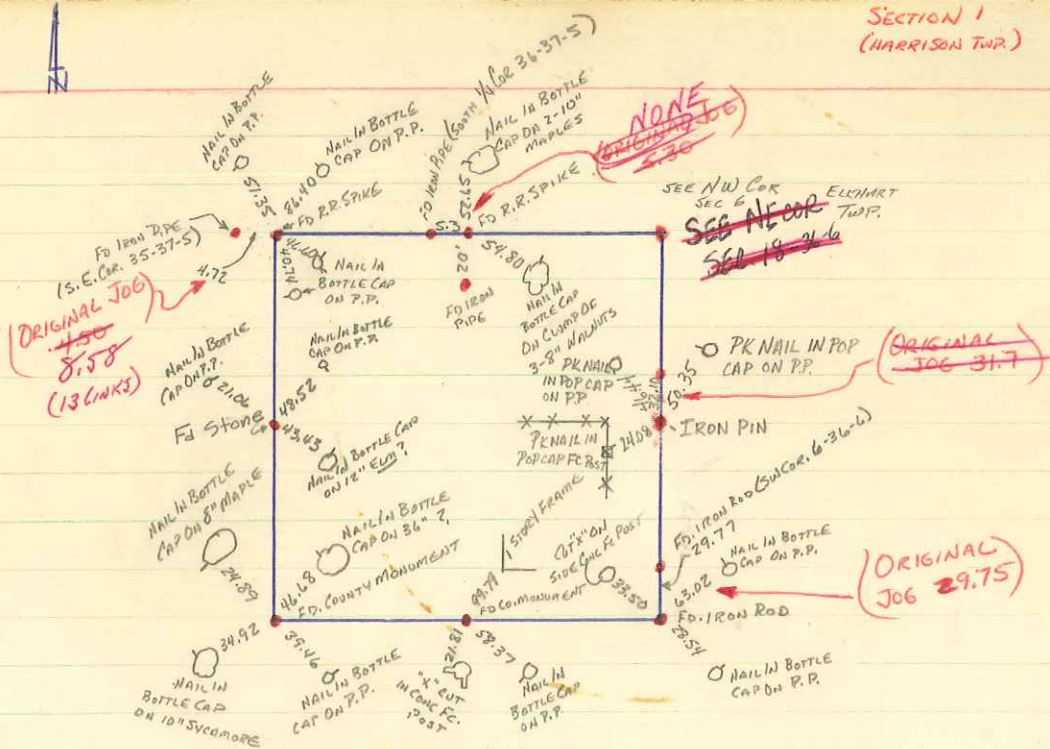 SECTION 1
(HARRISON TWP.)
N
NAIL IN BOTTLE
CAP ON P.P.
51.35
NAIL IN BOTTLE
CAP ON P.P.
86.40
FD R.R. SPIKE
FD IRON PIPE (SOUTH 1/4 COR 36-37-5)
NAIL IN BOTTLE
CAP ON 2-10"
MAPLES
57.25
FD R.R. SPIKE
NONE
(ORIGINAL JOG)
5.30
SEE NW COR
SEC 6
ELKHART
TWP.
SEE NE COR
SEC. 18-36-6
FD IRON PIPE
(S.E. COR. 35-37-5)
4.72
(ORIGINAL JOG)
4.50
8.58
(13 LINKS)
46.60
40.74
NAIL IN
BOTTLE CAP
ON P.P.
5.3
.02
FD IRON
PIPE
54.80
NAIL IN
BOTTLE CAP
ON CLUMP OF
3-8" WALNUTS
NAIL IN BOTTLE
CAP ON P.P.
21.06
NAIL IN BOTTLE
CAP ON P.P.
48.52
Fd Stone
43.43
NAIL IN BOTTLE CAP
ON 12" ELM?
PK NAIL
IN POP CAP
ON P.P.
32.10
50.35
PK NAIL IN POP
CAP ON P.P.
(ORIGINAL
JOG 31.7)
24.08
IRON PIN
PK NAIL IN
POP CAP FC POST
NAIL IN BOTTLE
CAP ON 8" MAPLE
24.89
NAIL IN BOTTLE
CAP ON 36" ?
46.68
FD. COUNTY MONUMENT
1 STORY FRAME
99.79
FD CO. MONUMENT
CUT "X" ON
SIDE CONC FC POST
33.50
FD. IRON ROD (SW COR. 6-36-6)
29.77
NAIL IN BOTTLE
CAP ON P.P.
63.02
FD. IRON ROD
(ORIGINAL
JOG 29.75)
34.92
NAIL IN
BOTTLE CAP
ON 10" SYCAMORE
39.46
NAIL IN BOTTLE
CAP ON P.P.
21.81
"X" CUT
IN CONC FC.
POST
58.37
NAIL IN
BOTTLE CAP
ON P.P.
28.54
NAIL IN BOTTLE
CAP ON P.P.